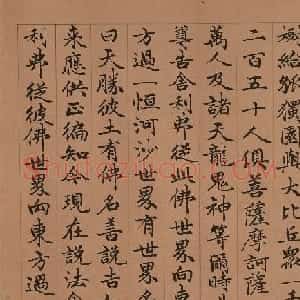 樹給孤獨園與大比丘衆一
二百五十人俱菩薩摩訶薩
萬人及諸天龍鬼神等爾時
尊告舍利弗從此佛世界向東
方過一恒河沙世界有世界名
曰天勝彼土有佛名善說吉
来應供正徧知今現在說法
利弗從彼佛世界向東方過